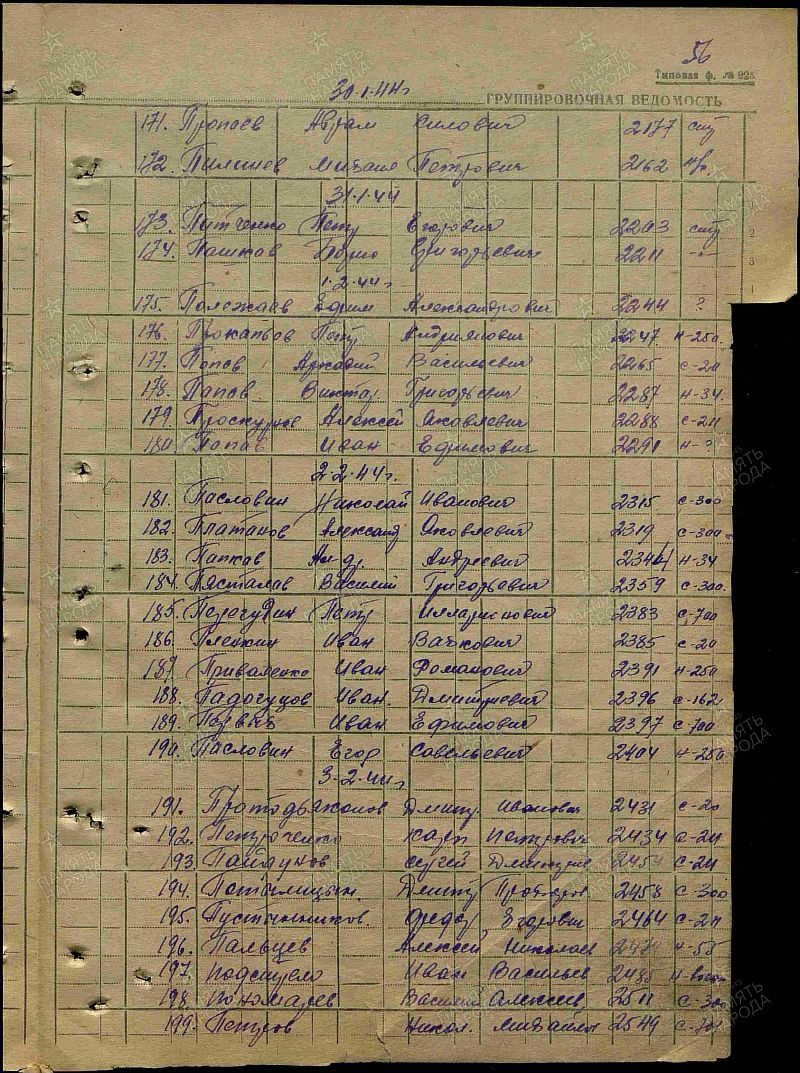 56
Типовая ф. № 925
30.1.44г
ГРУППИРОВОЧНАЯ ВЕДОМОСТЬ
171. Пропаев Аврам Силович 2177
172. Пилишев Михаил Петрович 2162
31.1.44
173. Патченко Петр Егорович 2203
174. Пашков Борис Григорьевич 2211 -"-
1.2.44г
175. Полежаев Ефим Александрович 2244 ?
176. Прокапьов Петр Андриянович 2247 н-250
177. Попов Аркадий Васильевич 2265 с-20
178. Папов Виктор Григорьевич 2287 н-34
179. Проскурнов Алексей Яковлевич 2288 с-211
180. Попов Иван Ефимович 2291 н-?
2.2.44г.
181. Пасловин Николай Иванович 2315 с-300
182. Платанов Александ Яковлевич 2319 с-300
183. Папков Андр. Андреевич 2344 н-34
184. Пасталов Василий Григорьевич 2359 с-300.
185. Перегудин Петр Илларионович 2383 с-700
186. Пленкин Иван Вачкович 2385 с-20
187. Приваленко Иван Романович 2391 н-250
188. Падогуцов Иван. Дмитриевич 2396 с-162
189. Первых Иван Ефимович 2397 с-700
190. Пасловин Егор Савельевич 2404 н-250
3-2-44г
191. Протодьяконов Дмитр. Иванович 2431 с-20
192. Петрученко Карп Петрович 2434 с-211
193. Пайдунов Сергей Дмитрие 2454 с-211
194. Потылицын. Дмитр Прохоров 2458 с-300
195. Пустынников. Федор Егорович 2464 с-211
196. Пальцев Алексей Николаев н-55
197. Подситело Иван Васильев 2485
198. Пономарев Василий Алексеев 2511 с-300
199. Петров Никол. Михайло 2549